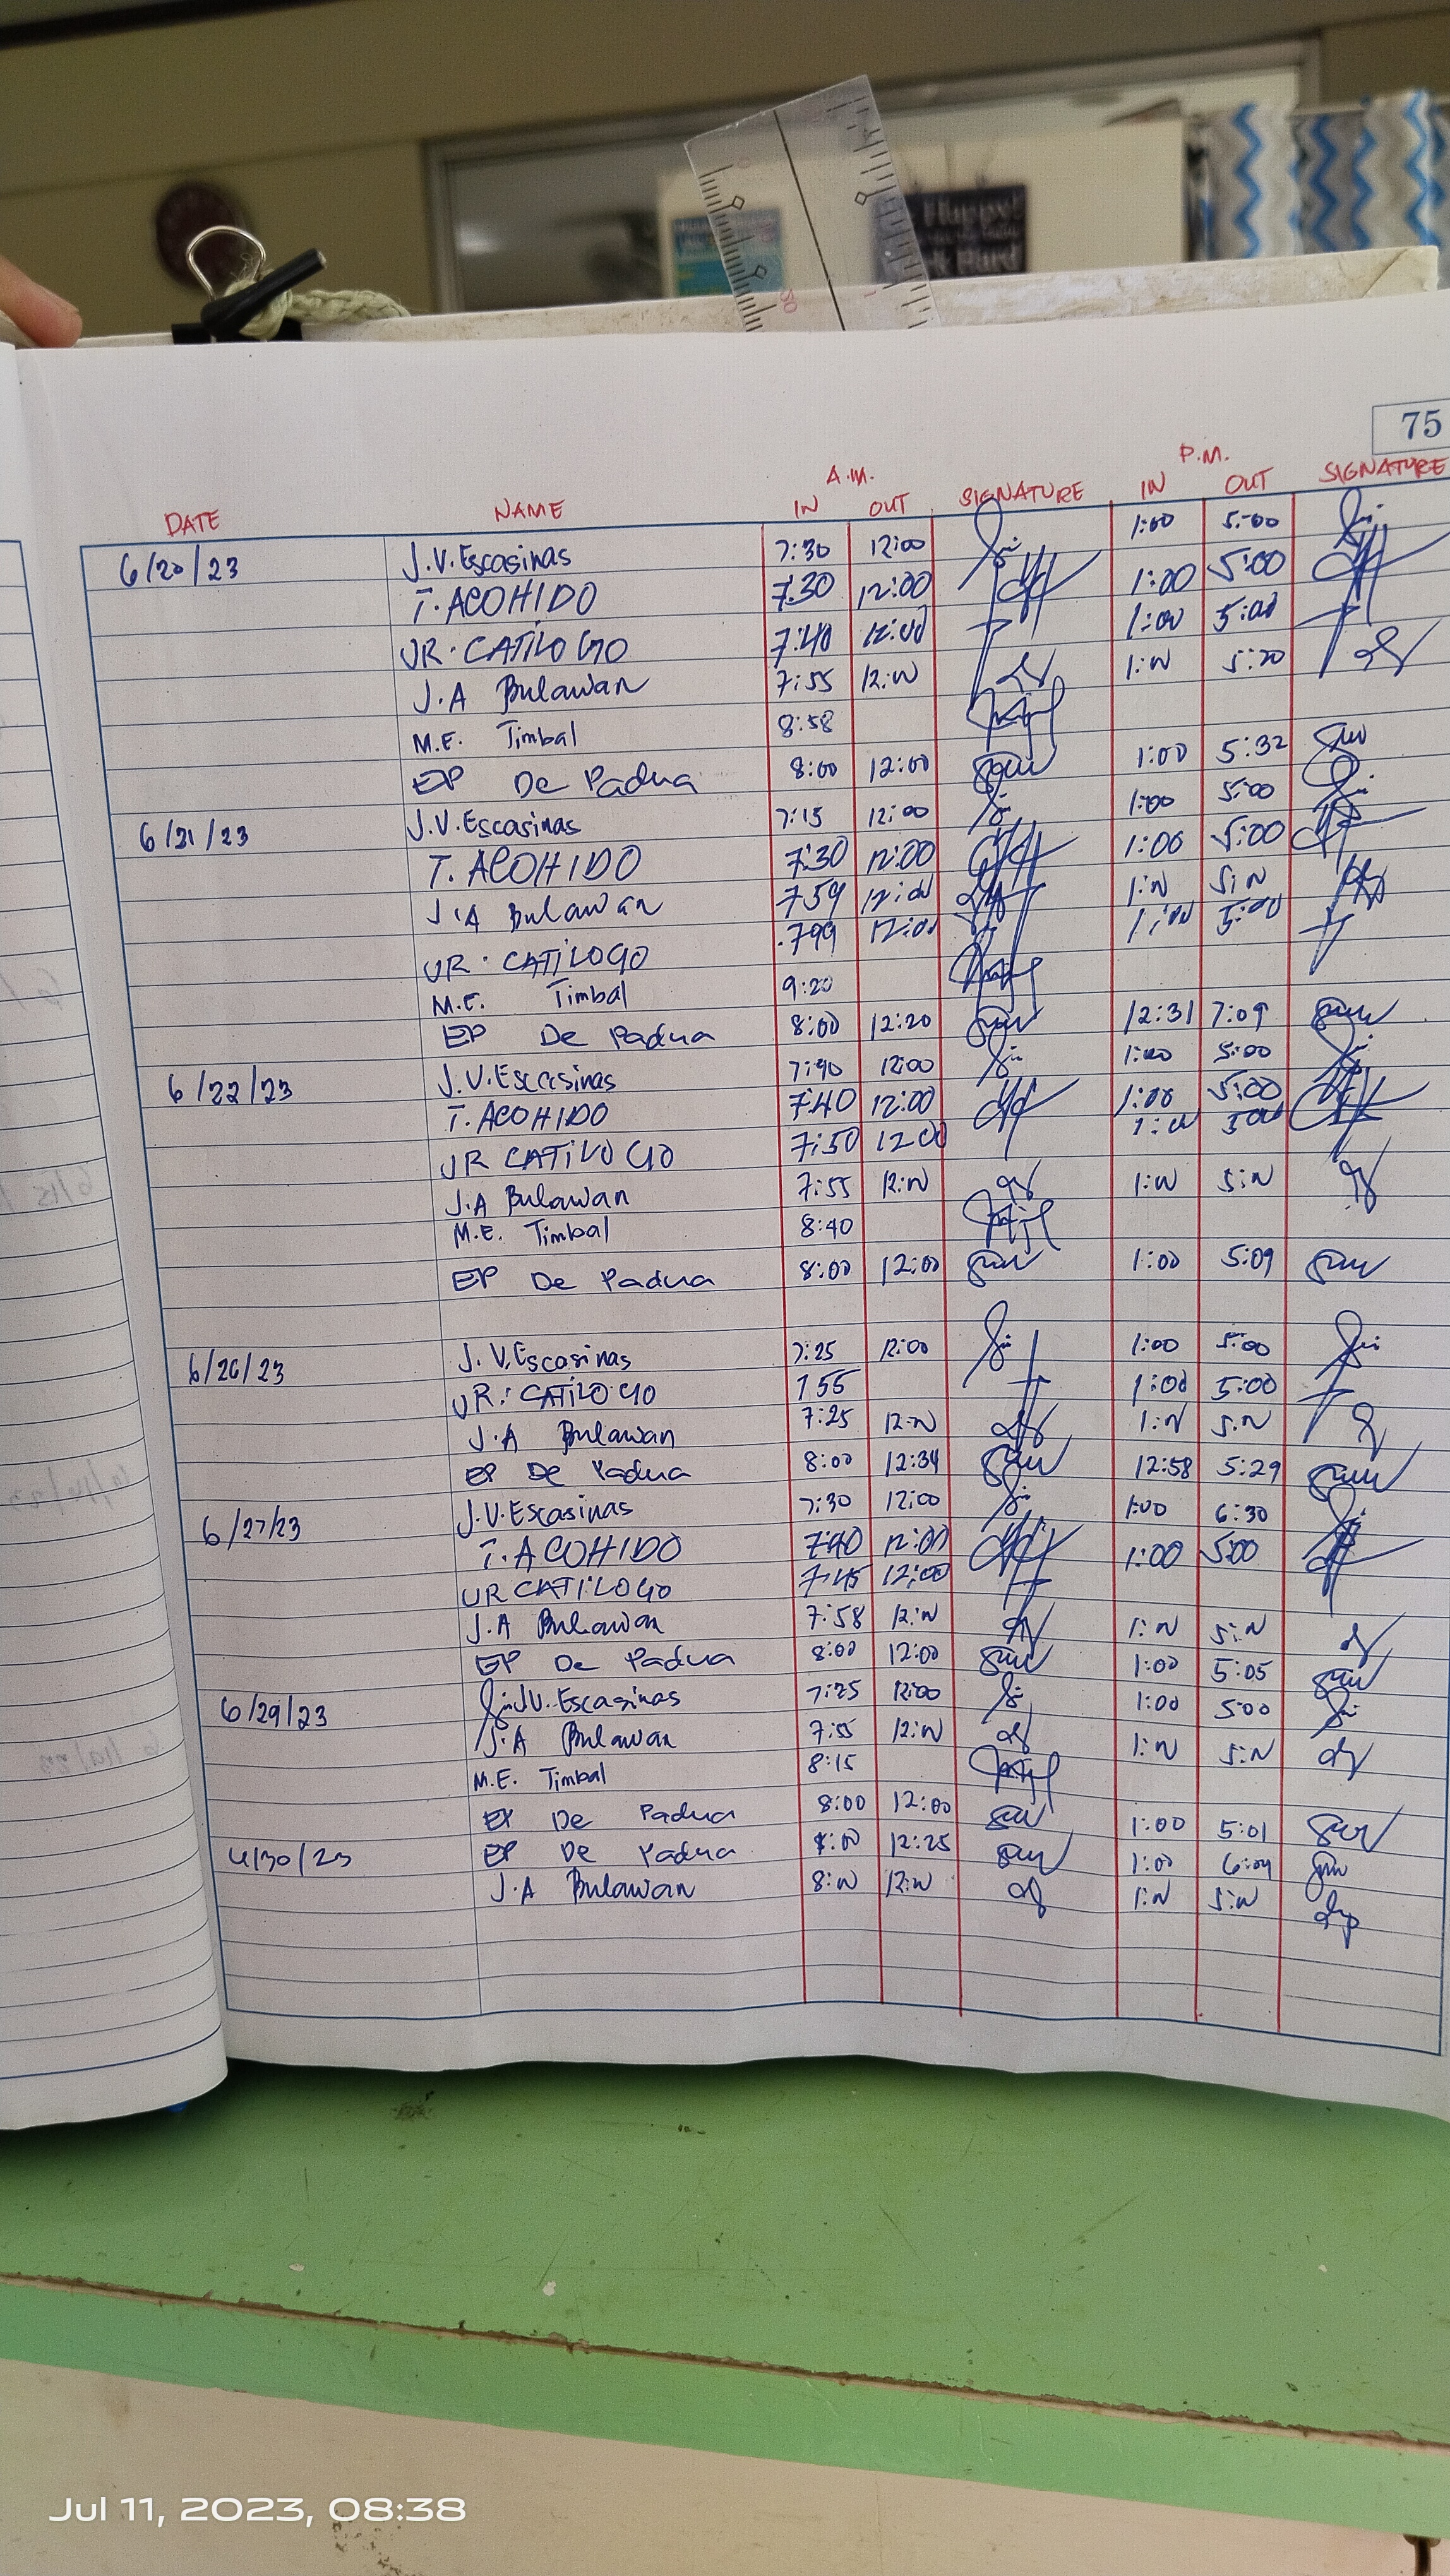 Happy!
Hard
75
A.M. P.M.
DATE NAME IN OUT SIGNATURE IN OUT SIGNATURE
6/20/23 J.V. Escasinas 7:30 12:00 1:00 5:00
T. ACOHIDO 7:30 12:00 1:00 5:00
JR. CATILOGO 7:40 12:00 1:00 5:00
J.A Bulawan 7:55 12:N 1:N 5:20
M.E. Timbal 8:58
EP De Padua 8:00 12:00 1:00 5:32
6/21/23 J.V. Escasinas 7:15 12:00 1:00 5:00
T. ACOHIDO 7:30 12:00 1:00 5:00
J.A Bulawan 759 12:00 1:N 5:N
JR. CATILOGO 12:00 1:00 5:00
M.E. Timbal 9:20
EP De Padua 8:00 12:20 12:31 7:09
6/22/23 J.V. Escasinas 7:40 12:00 1:00 5:00
T. ACOHIDO 7:40 12:00 1:00 5:00
JR CATILOGO 7:50 12 00 1:00 5 00
J.A Bulawan 7:55 12:N 1:N 5:N
M.E. Timbal 8:40
EP De Padua 8:00 12:00 1:00 5:09
6/26/23 J.V. Escasinas 7:25 12:00 1:00 5:00
JR. CATILOGO 7 55 1:00 5:00
J.A Bulawan 7:25 12:N 1:N 5:N
EP De Padua 8:00 12:34 12:58 5:29
6/27/23 J.V. Escasinas 7:30 12:00 1:00 6:30
T. ACOHIDO 7:40 12:00 1:00 5:00
JR CATILOGO 7:45 12:00
J.A Bulawan 7:58 12:N 1:N 5:N
EP De Padua 8:00 12:00 1:00 5:05
6/29/23 J.V. Escasinas 7:25 12:00 1:00 5:00
J.A Bulawan 7:55 12:N 1:N 5:N
M.E. Timbal 8:15
EP De Padua 8:00 12:00 1:00 5:01
6/30/23 EP De Padua 8:00 12:25 1:00 6:04
J.A Bulawan 8:N 12:N 1:N 5:N
Jul 11, 2023, 08:38